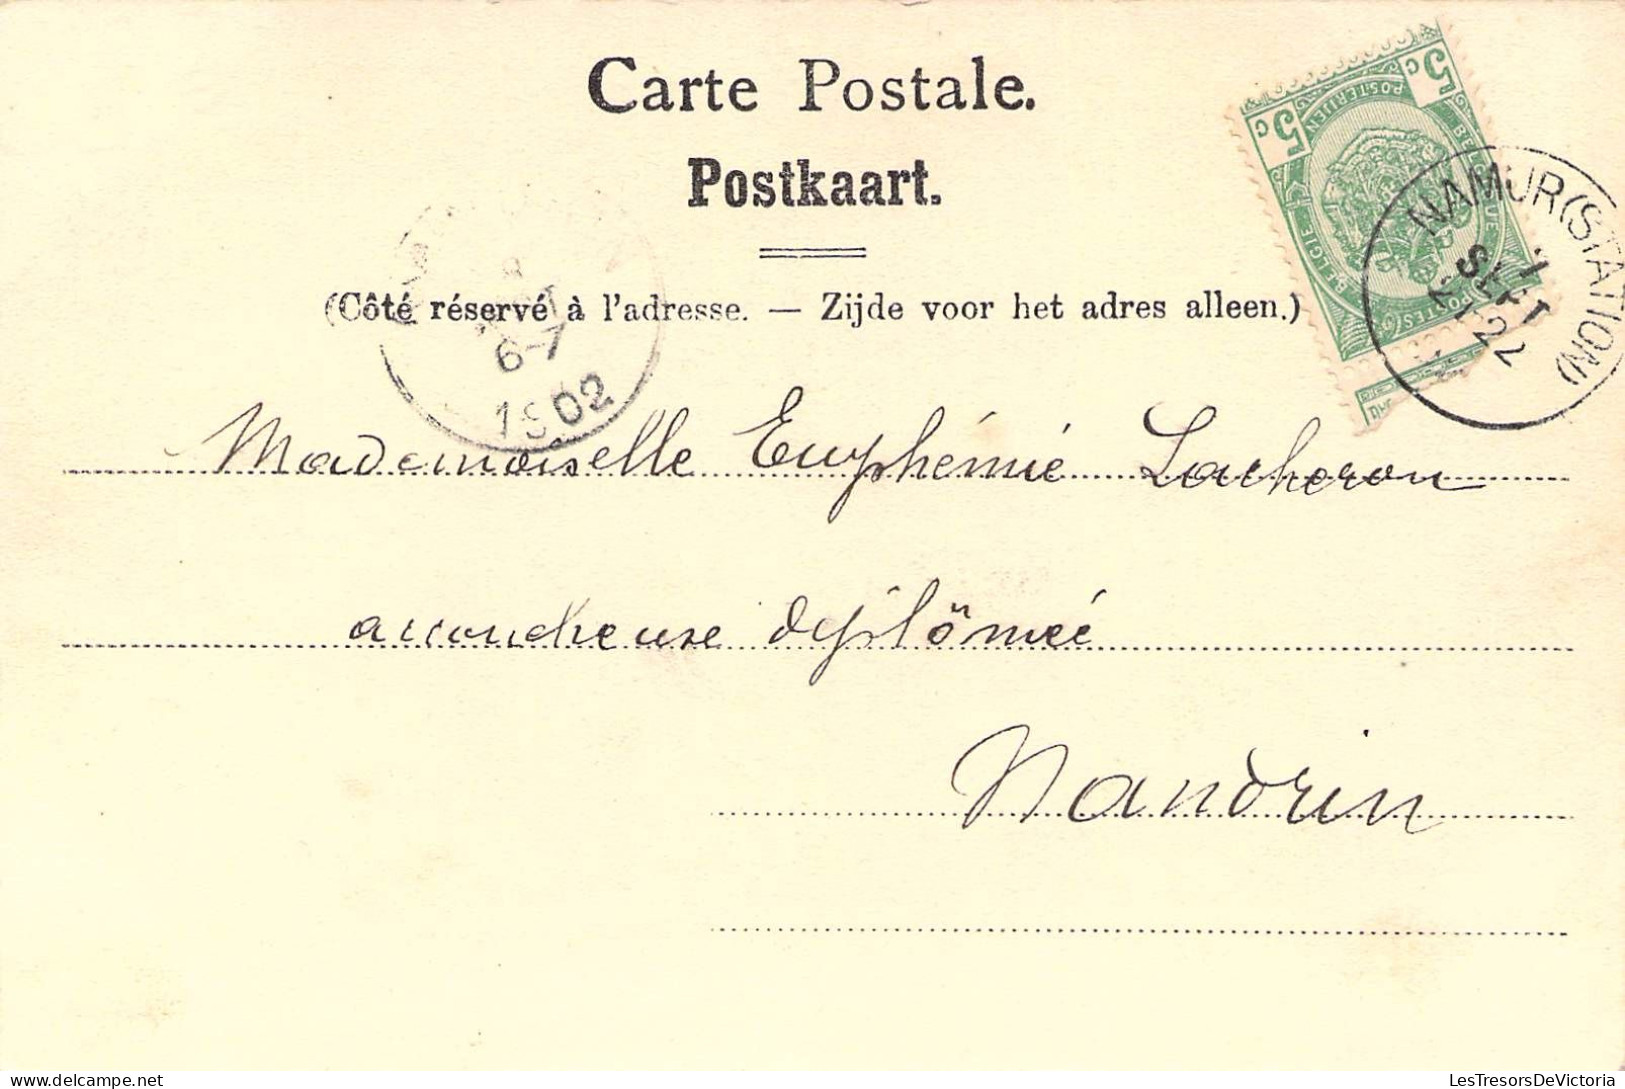 Carte Postale.
Postkaart.
(Côté réservé à l'adresse. — Zijde voor het adres alleen.)
5 c
5 c
POSTERIJEN
BELGIQUE
BELGIE
POSTES
NAMUR (STATION)
SEPT
6-7
1902
Mademoiselle Euphémie Lacheron
accoucheuse dyplômée
Nandrin
LesTresorsDeVictoria